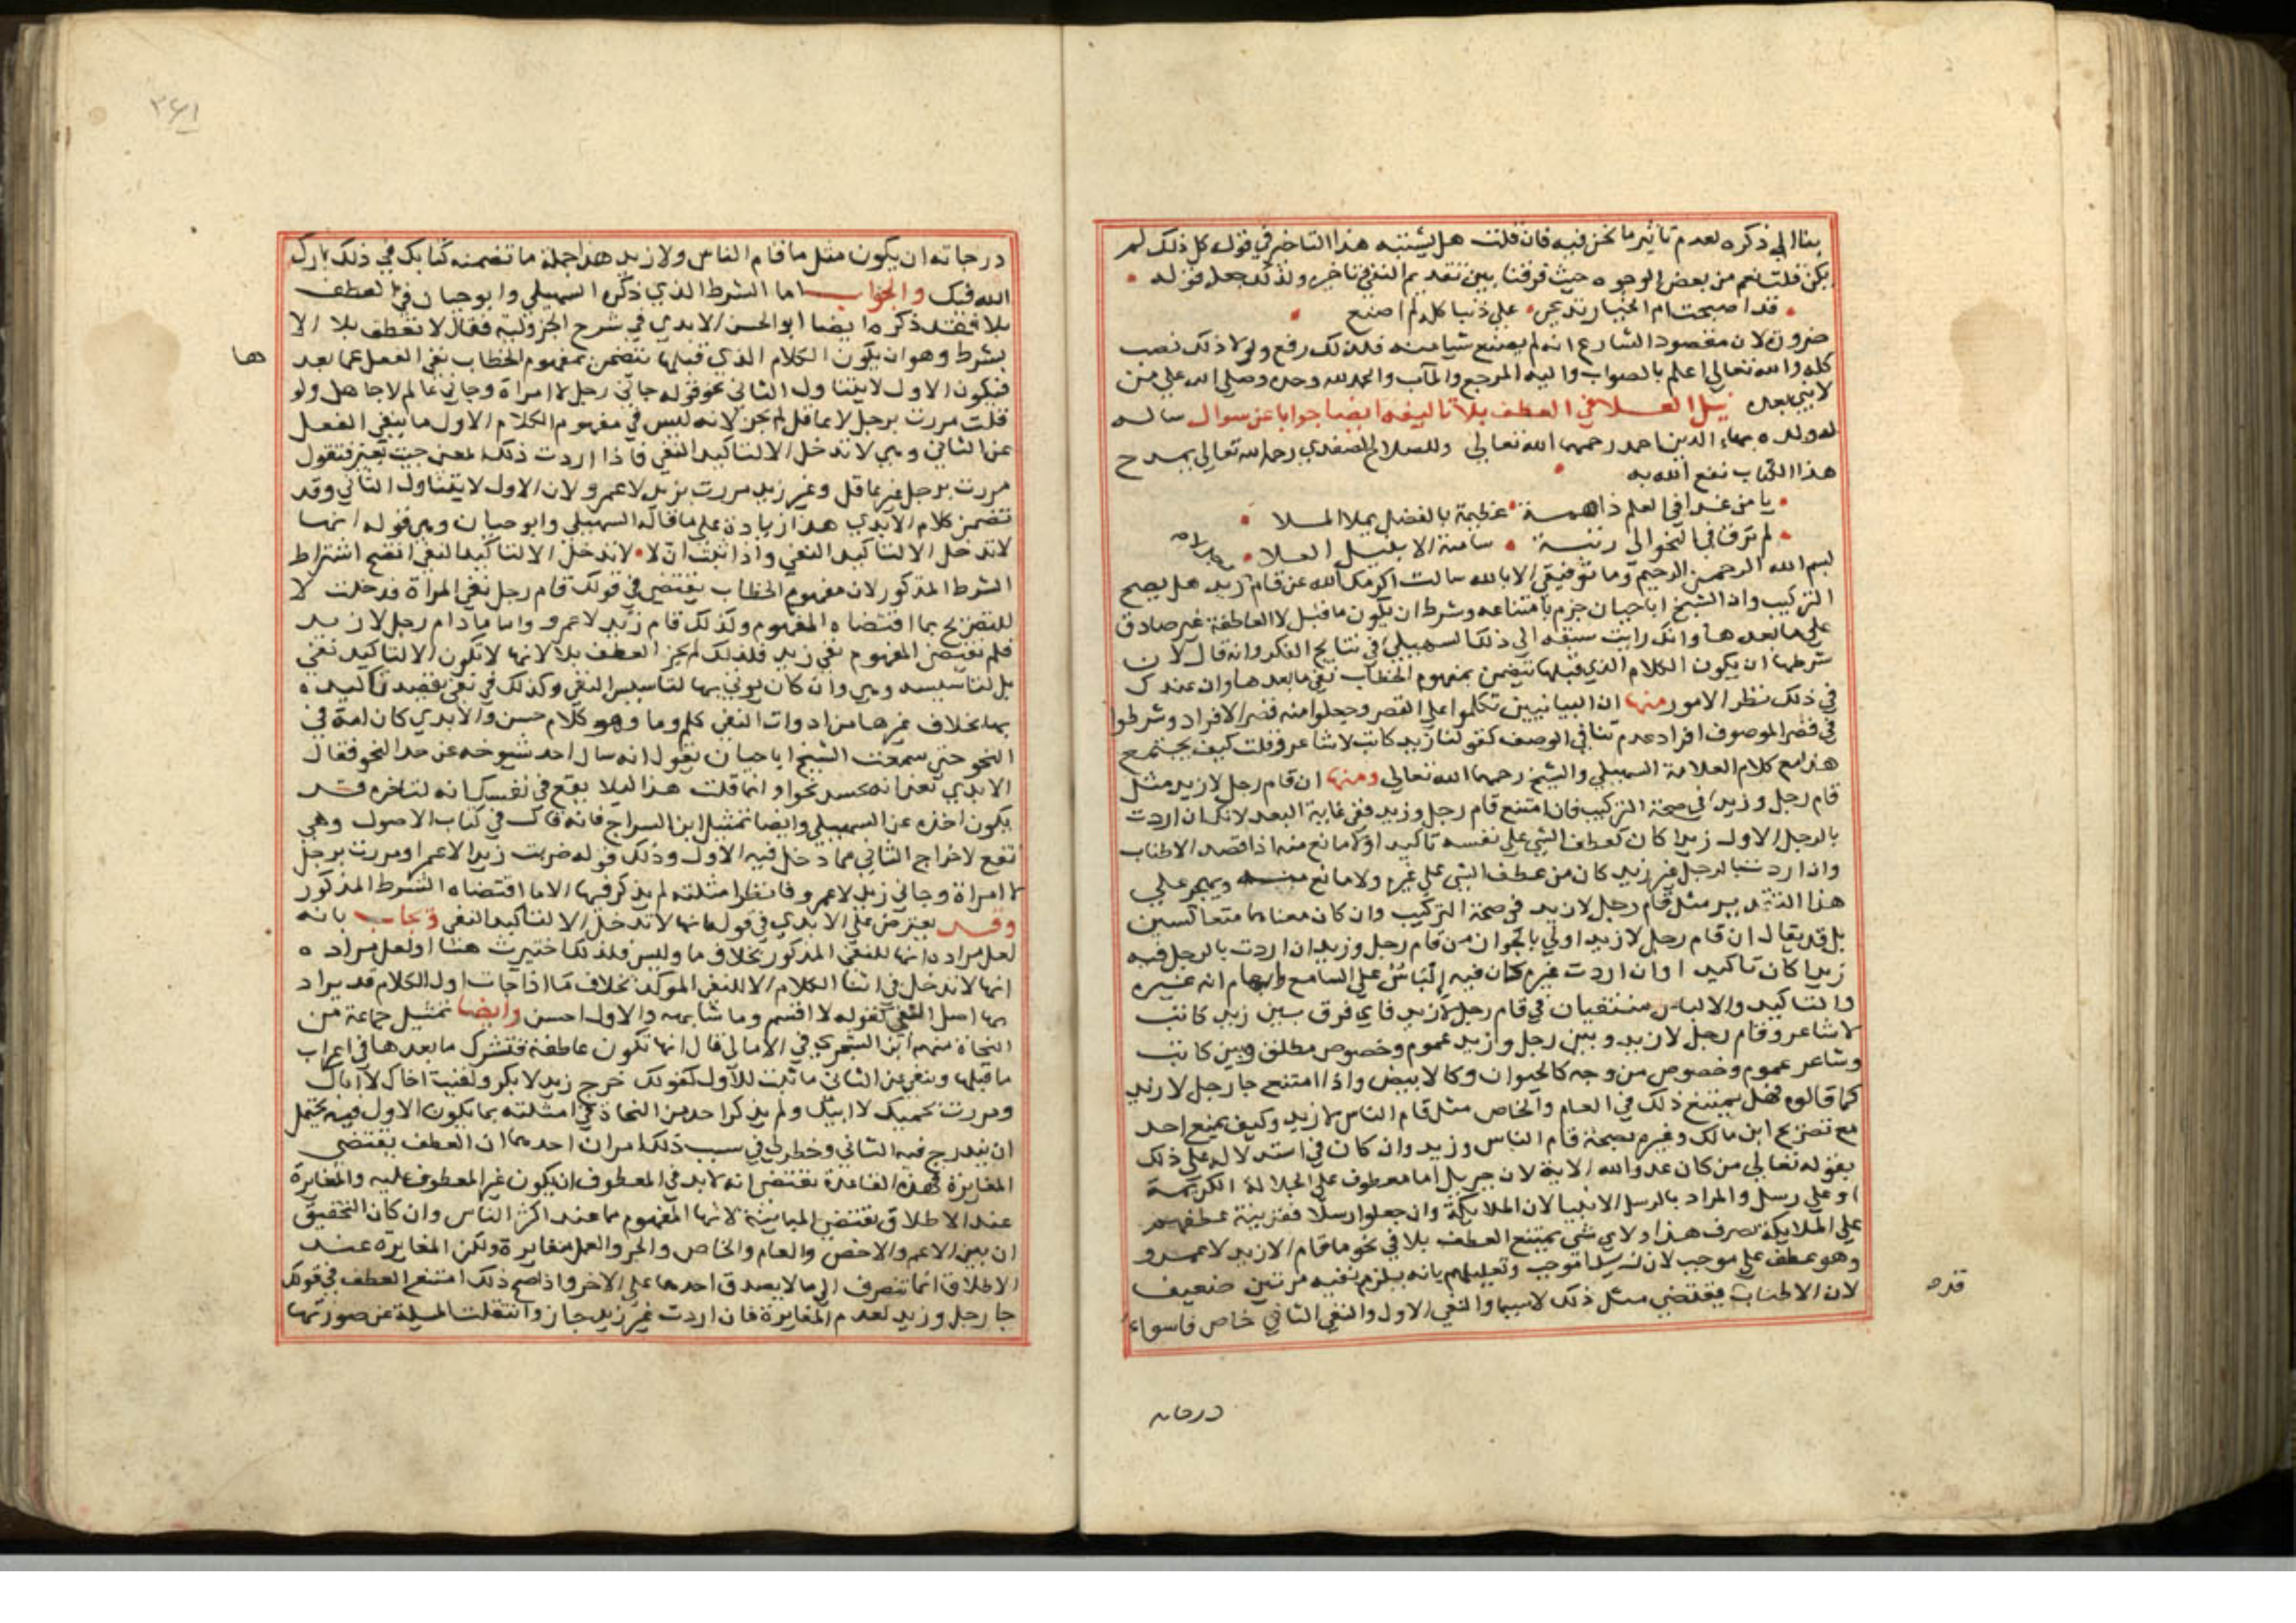 بنا الي ذكره لعدم تاثير ما نحن فيه فان قلت هل يشتبه هذا التاخير في قوله كل ذلك لم
يكن قلت نعم من بعض الوجوه حيث فرقنا بين تقديم النفي وتاخيره ولذلك جعل قوله
قد اصبحت ام الخيار تدعي علي ذنبا كله لم اصنع
ضرورة لان مقصود الشارع انه لم يصنع شيا منه فلذلك رفع ولولا ذلك نصب
كله والله تعالي اعلم بالصواب واليه المرجع والمآب والحمد لله وحده وصلي الله علي من
لا نبي بعده نيل العلا في العطف بلا تاليفه ايضا جوابا عن سوال ساله
له ولده بهاء الدين احمد رحمهما الله تعالي وللصلاح الصفدي رحمه الله تعالي يمدح
هذا الكتاب نفع الله به
يا من غدا في العلم ذا همة عظيمة بالفضل يملا الملا
لم ترق في النحو الي رتبة سامية الا بنيل العلا
بسم الله الرحمن الرحيم وما توفيقي الا بالله سالت اكرمك الله عن قام زيد هل يصح
التركيب وان الشيخ ابا حيان جزم بامتناعه وشرط ان يكون ما قبل لا العاطفة غير صادق
علي ما بعدها وانك رايت سبقه الي ذلك السهيلي في نتايج الفكر وانه قال لان
شرطها ان يكون الكلام الذي قبلها يتضمن بمفهوم الخطاب نفي ما بعدها وان عندك
في ذلك نظرا لامور منها ان البيانيين تكلموا علي القصر وجعلوا منه قصر الافراد وشرطوا
في قصر الموصوف افراد عدم تنافي الوصف كقولنا زيد كاتب لا شاعر وقلت كيف يجتمع
هذا مع كلام العلامة السهيلي والشيخ رحمهما الله تعالي ومنها ان قام رجل لا زيد مثل
قام رجل وزيد في صحة التركيب فان امتنع قام رجل وزيد ففي غاية البعد لانك ان اردت
بالرجل الاول زيدا كان كعطف الشي علي نفسه تاكيدا ولا مانع منه اذا قصد الاطناب
واذا اردت بالرجل غير زيد كان من عطف الشي علي غيره ولا مانع منه ويصير علي
هذا التقدير مثل قام رجل لا زيد في صحة التركيب وان كان معناهما متعاكسين
بل قد يقال ان قام رجل لا زيد اولي بالجواز من قام رجل وزيد لان اردت بالرجل فيه
زيدا كان تاكيدا وان اردت غيره كان فيه الباس علي السامع وايهام انه غيره
والتاكيد والالباس منتفيان في قام رجل لا زيد فاي فرق بين زيد كاتب
لا شاعر وقام رجل لا زيد وبين رجل وزيد عموم وخصوص مطلق وبين كاتب
وشاعر عموم وخصوص من وجه كالحيوان وكالابيض واذا امتنع جا رجل لا زيد
كما قالوه فهل يمتنع ذلك في العام والخاص مثل قام الناس لا زيد وكيف يمنع احد
مع تصريح ابن مالك وغيره بصحة قام الناس وزيد وان كان في استدلاله علي ذلك
بقوله تعالي من كان عدوا لله الاية لان جبريل اما معطوف علي الجلالة الكريمة
او علي رسل والمراد بالرسل الانبيا لان الملايكة وان جعلوا رسلا فقرينة عطفهم
علي الملايكة تصرف هذا ولاي شي يمتنع العطف بلا في نحو ما قام الا زيد لا عمرو
وهو عطف علي موجب لان زيدا موجب وتعليلهم بانه يلزم نفيه مرتين ضعيف
لان الاطناب يقتضي مثل ذلك لاسيما والنفي الاول والنفي الثاني خاص فاسواء
قده
درجاته
٣٤١
درجاته ان يكون مثل ما قام الناس ولا زيد هذا جملة ما تضمنه كتابك في ذلك بارك
الله فيك والجواب اما الشرط الذي ذكره السهيلي وابو حيان في العطف
بلا فقد ذكره ايضا ابو الحسن الابدي في شرح الجزولية فقال لا تعطف بلا الا
بشرط وهو ان يكون الكلام الذي قبلها يتضمن بمفهوم الخطاب نفي الفعل عما بعد
ها
فيكون الاول لا يتناول الثاني نحو قوله جاني رجل لا امراة وجاني عالم لا جاهل ولو
قلت مررت برجل لا عاقل لم يجز لانه ليس في مفهوم الكلام الاول ما ينفي الفعل
عن الثاني وهي لا تدخل الا لتاكيد النفي فاذا اردت ذلك المعني جيت بغير فتقول
مررت برجل غير عاقل وغير زيد ومررت بزيد لا عمرو لان الاول لا يتناول الثاني وقد
تضمن كلام الابدي هذا زيادة علي ما قاله السهيلي وابو حيان وهي قوله انها
لا تدخل الا لتاكيد النفي واذا ثبت ان لا لا تدخل الا لتاكيد النفي اتضح اشتراط
الشرط المذكور لان مفهوم الخطاب يقتضي في قولك قام رجل نفي المراة فدخلت لا
للتصريح بما اقتضاه المفهوم وكذلك قام زيد لا عمرو واما قام رجل لا زيد
فلم يقتض المفهوم نفي زيد فلذلك لم يجز العطف بلا لانها لا تكون الا لتاكيد نفي
بل لتاسيسه وهي وان كان يوتي بها لتاسيس النفي وكذلك في نفي يقصد تاكيده
بها بخلاف غيرها من ادوات النفي كلم وما وهو كلام حسن والابدي كان امة في
النحو حتي سمعت الشيخ ابا حيان يقول انه سال احد شيوخه عن حد النحو فقال
الابدي يعني انه تجسد نحوا وانما قلت هذا ليلا يقع في نفسك انه لتاخره قد
يكون اخذه عن السهيلي وايضا تمثيل ابن السراج فانه قال في كتاب الاصول وهي
تقع لاخراج الثاني مما دخل فيه الاول وذلك قوله ضربت زيدا لا عمرا ومررت برجل
لا امراة وجاني زيد لا عمرو فانظر امثلته لم يذكر فيها الا ما اقتضاه الشرط المذكور
وقد يعترض علي الابدي في قوله انها لا تدخل الا لتاكيد النفي ويجاب بانه
لعل مراده انها للنفي المذكور بخلاف ما وليس فلذلك اختيرت هنا اولعل مراده
انها لا تدخل في اثنا الكلام الا للنفي الموكد بخلاف ما اذا جات اول الكلام قد يراد
بها اصل النفي كقوله لا اقسم وما شابهه والاول احسن وايضا تمثيل جماعة من
النحاة منهم ابن الشجري في الامالي قال انها تكون عاطفة فتشرك ما بعدها في اعراب
ما قبلها وتنفي عن الثاني ما ثبت للاول كقولك خرج زيد لا بكر ولقيت اخاك لا اباك
ومررت بحميك لا ابيك ولم يذكر احد من النحاة في امثلته ما يكون الاول فيه يحتمل
ان يندرج فيه الثاني وخطر لي في سبب ذلك امران احدهما ان العطف يقتضي
المغايرة فهذه القاعدة تقتضي انه لا بد في المعطوف ان يكون غير المعطوف عليه والمغايرة
عند الاطلاق تقتضي المباينة لانها المفهوم منها عند اكثر الناس وان كان التحقيق
ان بين الاعم والاخص والعام والخاص والجزو والكل مغايرة ولكن المغايرة عند
الاطلاق انما تنصرف الي ما لا يصدق احدهما علي الاخر واذا صح ذلك امتنع العطف في قولك
جا رجل وزيد لعدم المغايرة فان اردت غير زيد جاز وانتقلت المسيلة عن صورتها